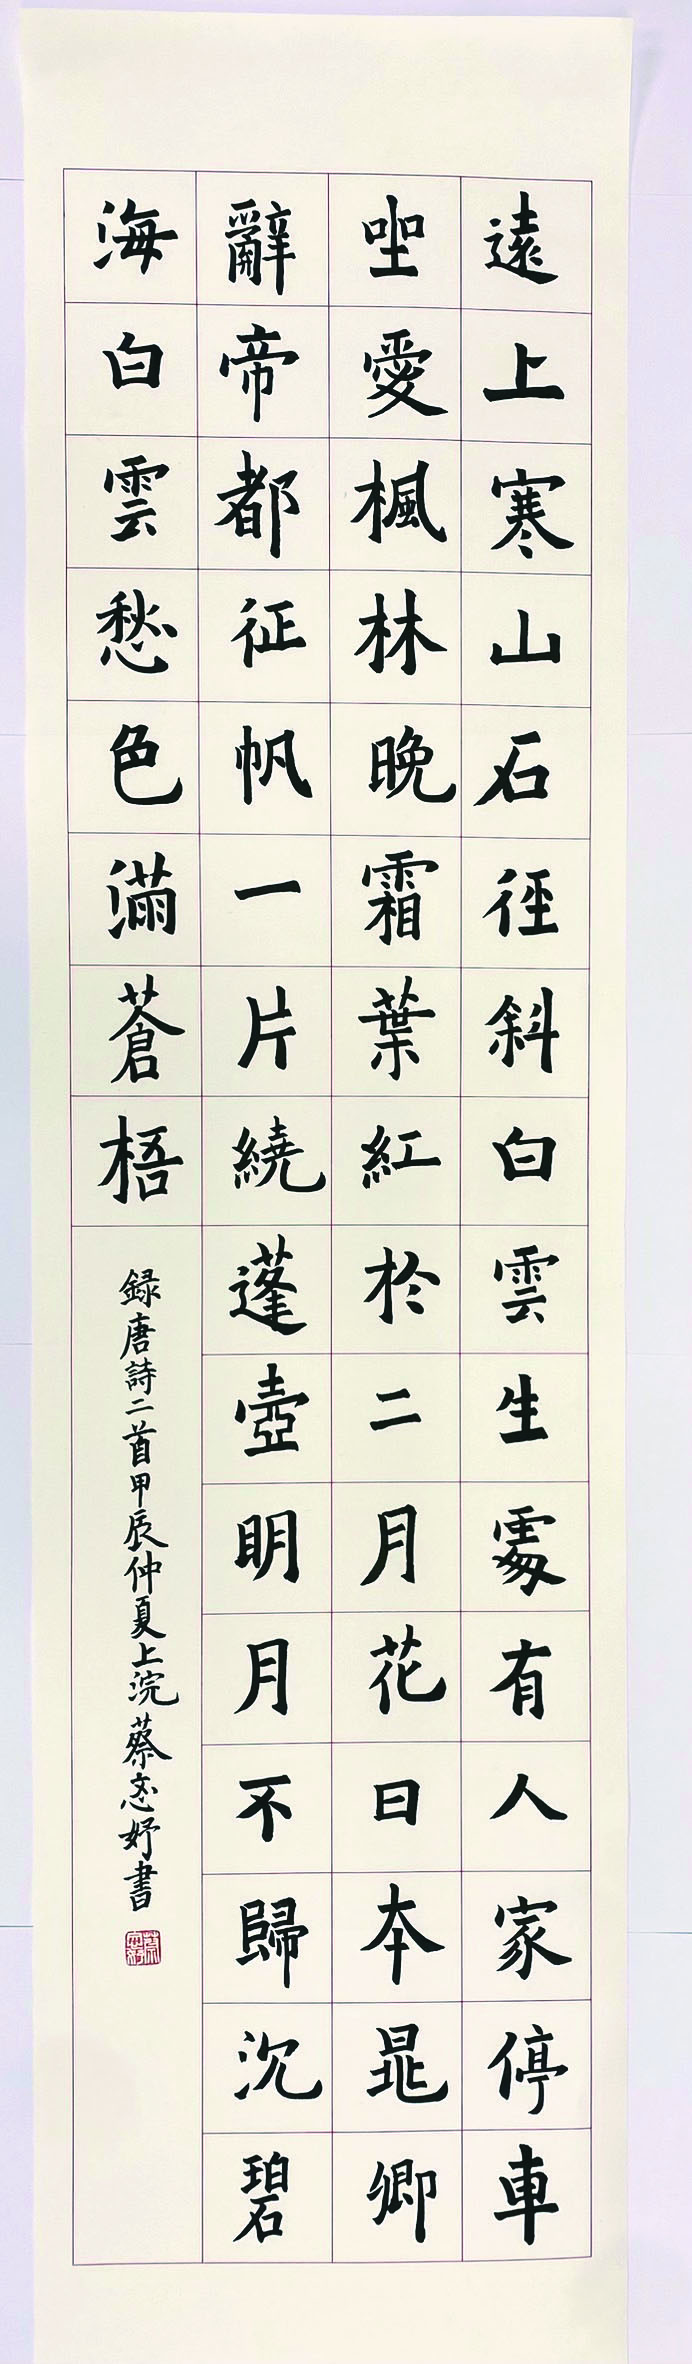 遠上寒山石徑斜白雲生處有人家停車
坐愛楓林晚霜葉紅於二月花日本晁卿
辭帝都征帆一片繞蓬壺明月不歸沉碧
海白雲愁色滿蒼梧
録唐詩二首甲辰仲夏上浣蔡忞妤書